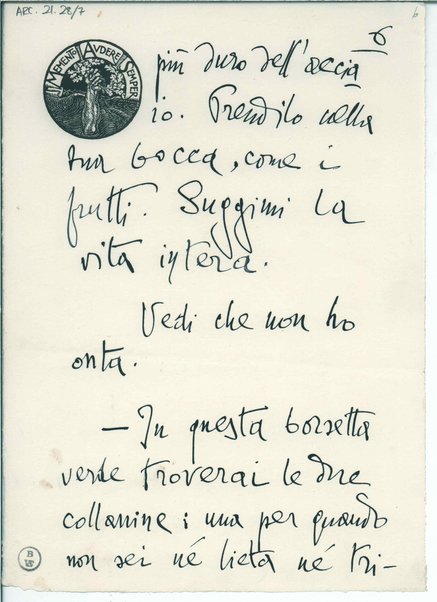 ARC. 21. 28/7
6
6
MEMENTO AVDERE SEMPER
più duro dell'accia
io. Prendilo nella
tua bocca, come i
frutti. Suggimi la
vita intera.
Vedi che non ho
onta.
— In questa borsetta
verde troverai le due
collanine: una per quando
non sei né lieta né tri-